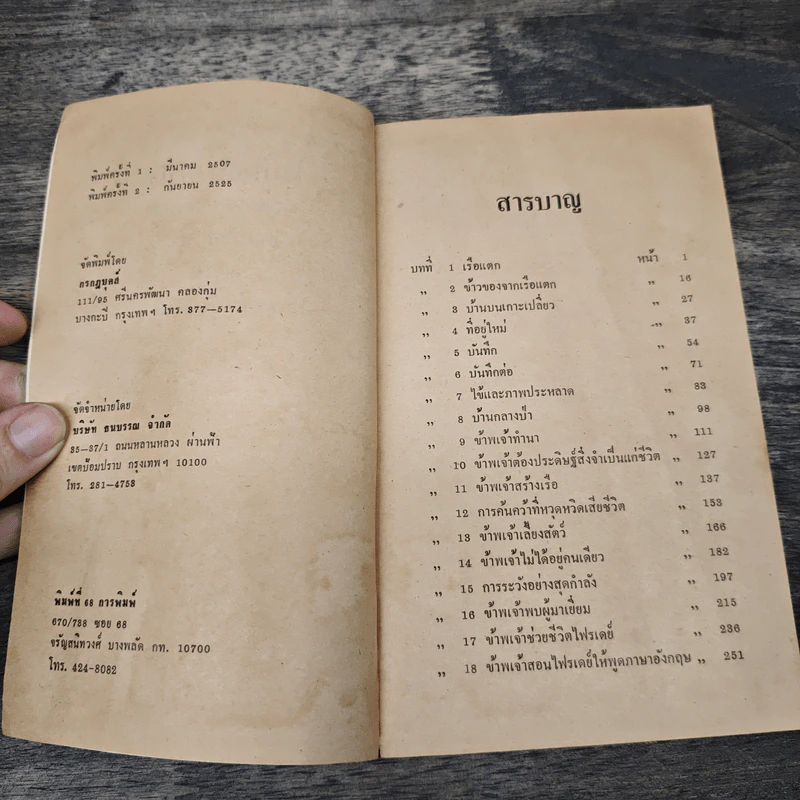 พิมพ์ครั้งที่ 1 : มีนาคม 2507
พิมพ์ครั้งที่ 2 : กันยายน 2525
จัดพิมพ์โดย
กรกฎบุคส์
111/95 ศรีนครพัฒนา คลองกุ่ม
บางกะปี กรุงเทพฯ โทร. 377–5174
จัดจำหน่ายโดย
บริษัท ธนบรรณ จำกัด
35–37/1 ถนนหลานหลวง ผ่านฟ้า
เขตป้อมปราบ กรุงเทพฯ 10100
โทร. 281–4753
พิมพ์ที่ 68 การพิมพ์
670/738 ซอย 68
จรัญสนิทวงศ์ บางพลัด กท. 10700
โทร. 424-8082
สารบาญ
บทที่ 1 เรือแตก หน้า 1
,, 2 ข้าวของจากเรือแตก ,, 16
,, 3 บ้านบนเกาะเปลี่ยว ,, 27
,, 4 ที่อยู่ใหม่ ,, 37
,, 5 บันทึก ,, 54
,, 6 บันทึกต่อ ,, 71
,, 7 ไข้และภาพประหลาด ,, 83
,, 8 บ้านกลางป่า ,, 98
,, 9 ข้าพเจ้าทำนา ,, 111
,, 10 ข้าพเจ้าต้องประดิษฐ์สิ่งจำเป็นแก่ชีวิต ,, 127
,, 11 ข้าพเจ้าสร้างเรือ ,, 137
,, 12 การค้นคว้าที่หวุดหวิดเสียชีวิต ,, 153
,, 13 ข้าพเจ้าเลี้ยงสัตว์ ,, 166
,, 14 ข้าพเจ้าไม่ได้อยู่คนเดียว ,, 182
,, 15 การระวังอย่างสุดกำลัง ,, 197
,, 16 ข้าพเจ้าพบผู้มาเยี่ยม ,, 215
,, 17 ข้าพเจ้าช่วยชีวิตไฟรเดย์ ,, 236
,, 18 ข้าพเจ้าสอนไฟรเดย์ให้พูดภาษาอังกฤษ ,, 251